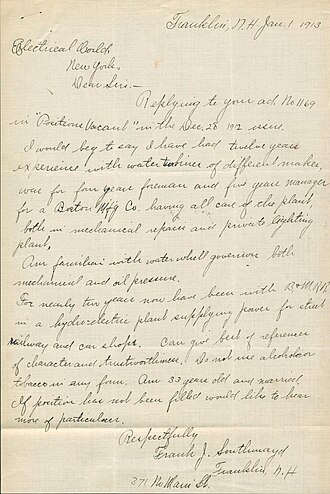 Franklin, N.H. Jan. 1 1913
Electrical World,
New York.
Dear Sir:-
Replying to your ad. No 1169
in "Positions Vacant" in the Dec. 28 1912 issue.
I would beg to say I have had twelve years
experience with water turbines of different makes,
was for four years foreman and five years manager
for a Boston Mfg Co. having all care of the plant,
both in mechanical repairs and private lighting
plant,
Am familiar with water wheel governors both
mechanical and oil pressure.
For nearly two years now have been with B & M. R.R
in a hydro-electric plant supplying power for street
railway and car shops. Can give best of reference
of character and trustworthiness. Do not use alcohol or
tobacco in any form. Am 33 years old and married.
If position has not been filled would like to hear
more of particulars.
Respectfully
Frank J. Southmayd
Franklin, N.H
371 No Main St.